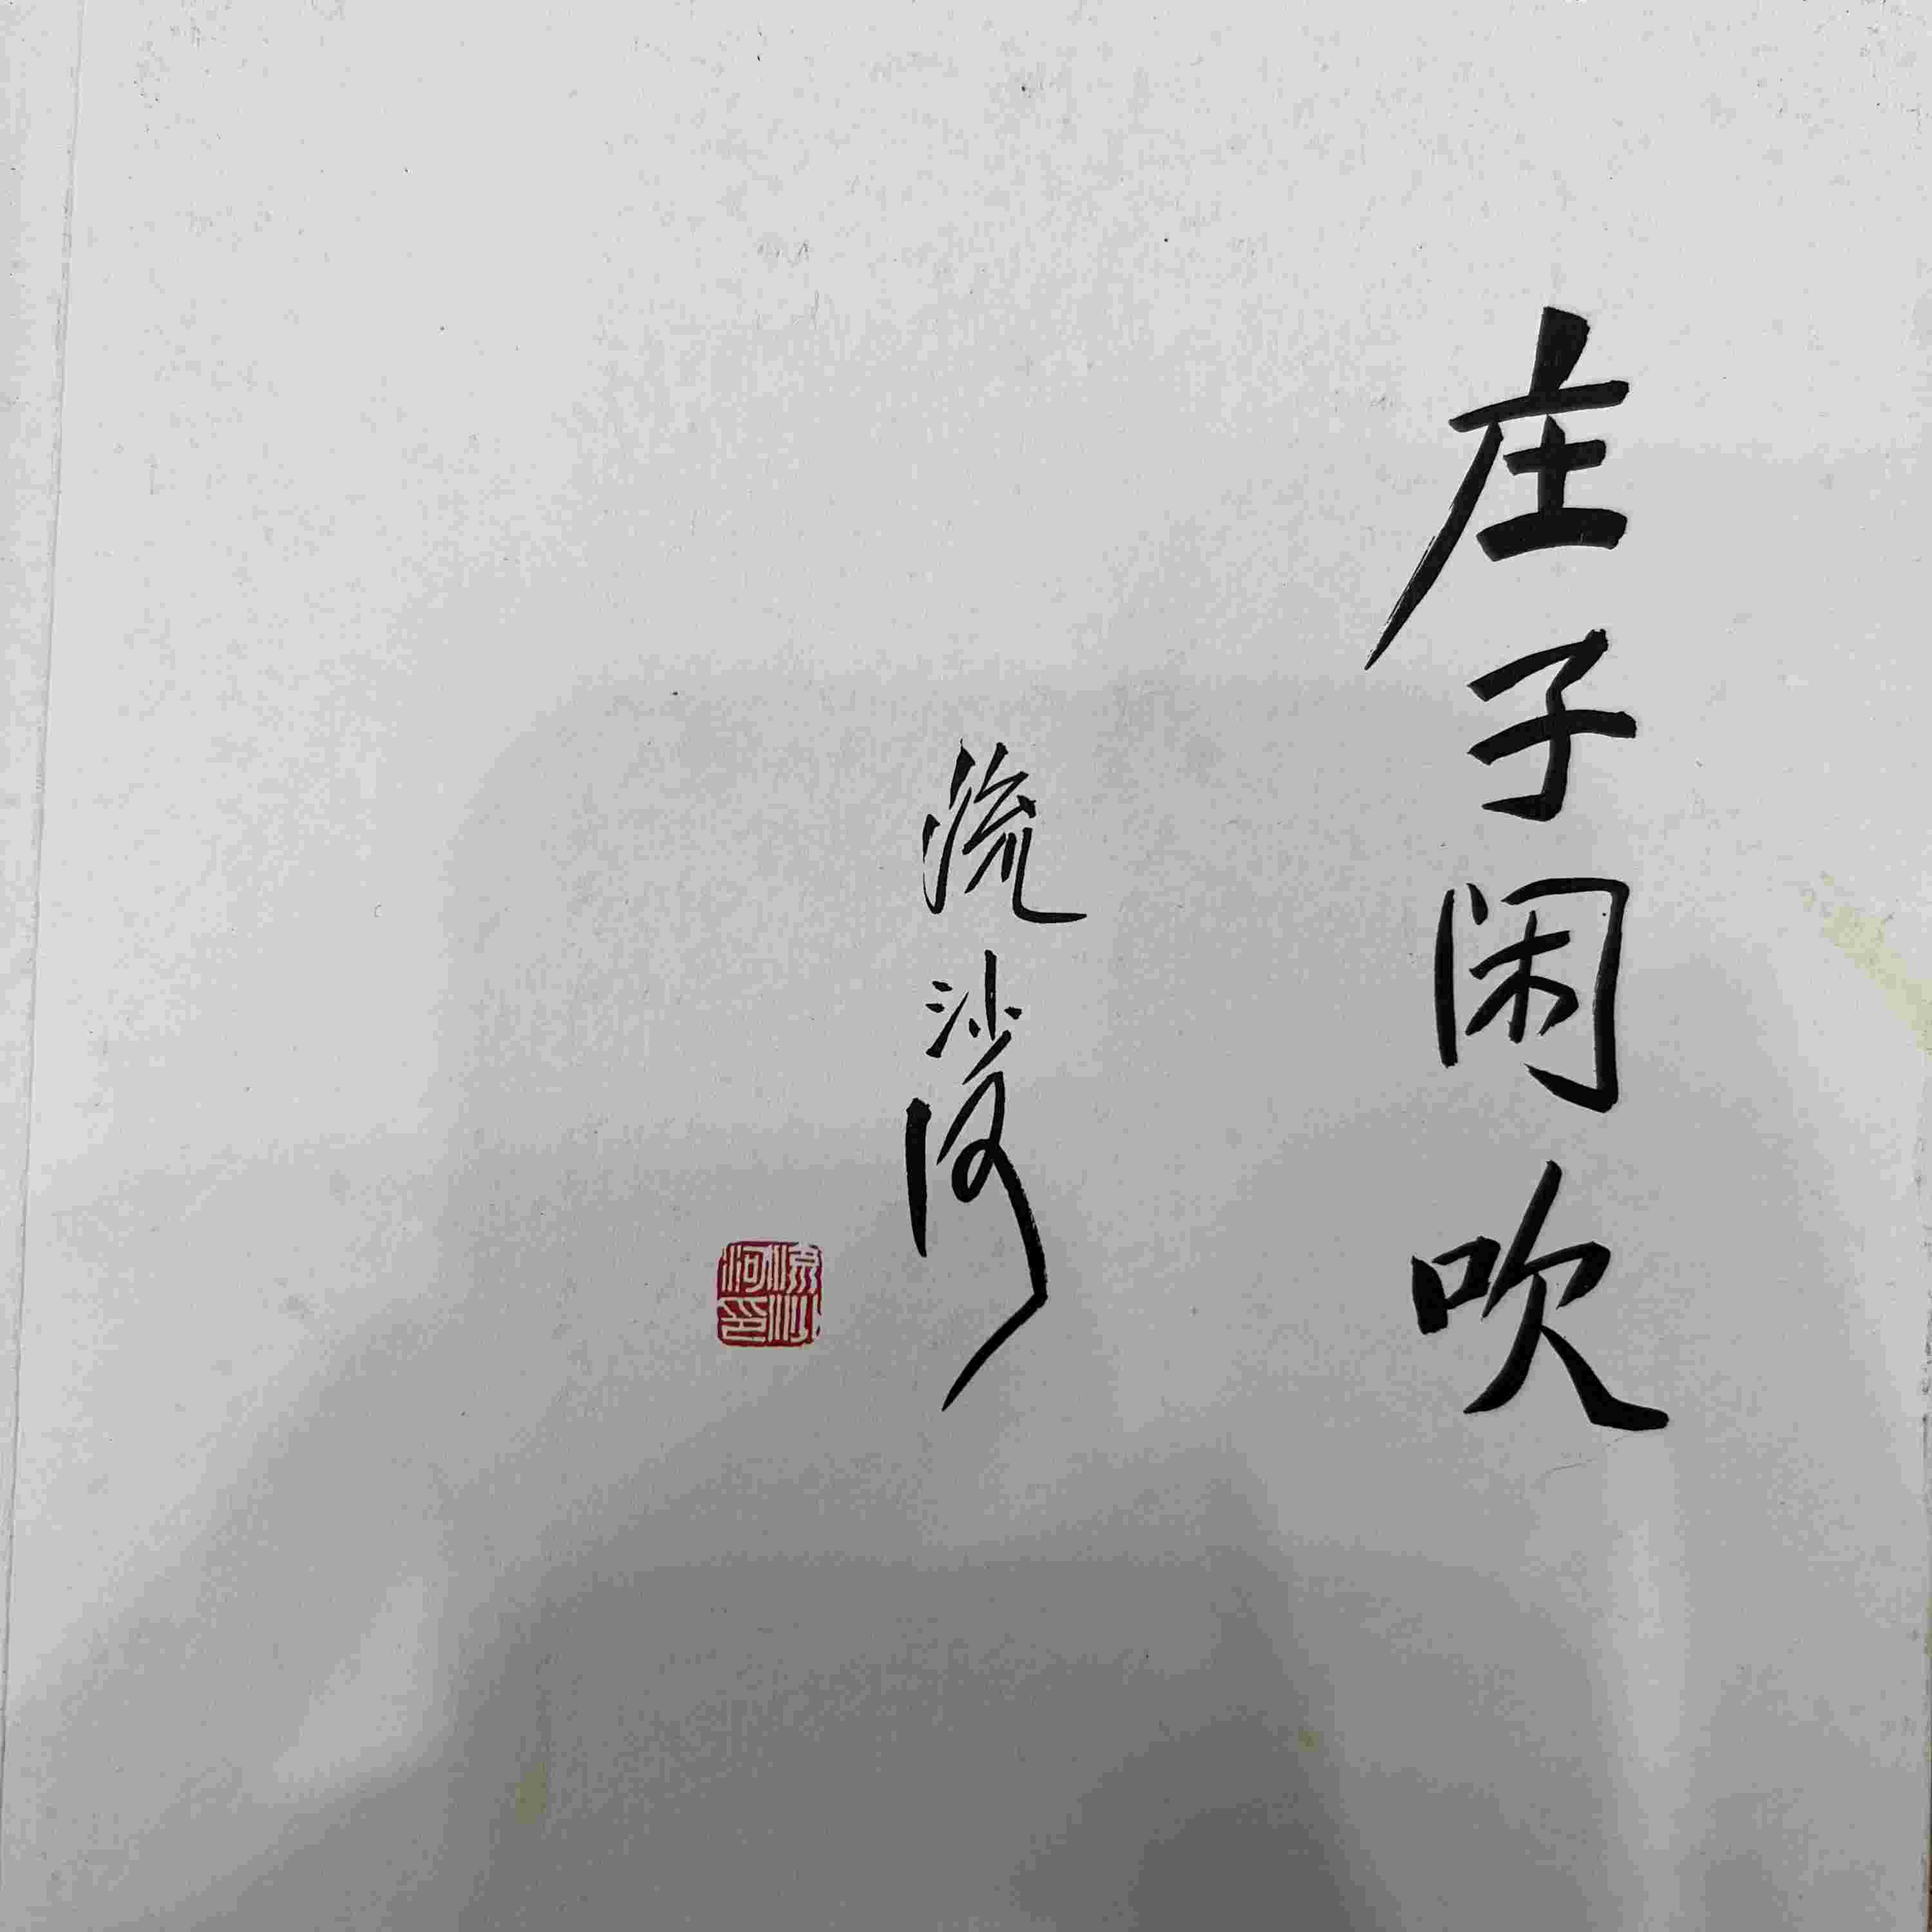 庄子闲吹
流沙河
流沙河印